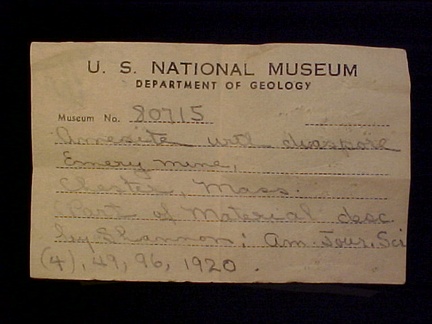 U. S. NATIONAL MUSEUM
DEPARTMENT OF GEOLOGY
Museum No. 80715
Amesite with diaspore
Emery mine,
Chester, Mass.
Part of Material desc
by Shannon; Am. Jour. Sci
(4), 49, 96, 1920.